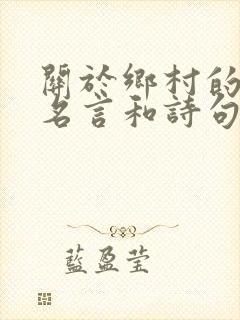 關於鄉村的
名言和詩句
藍盈瑩